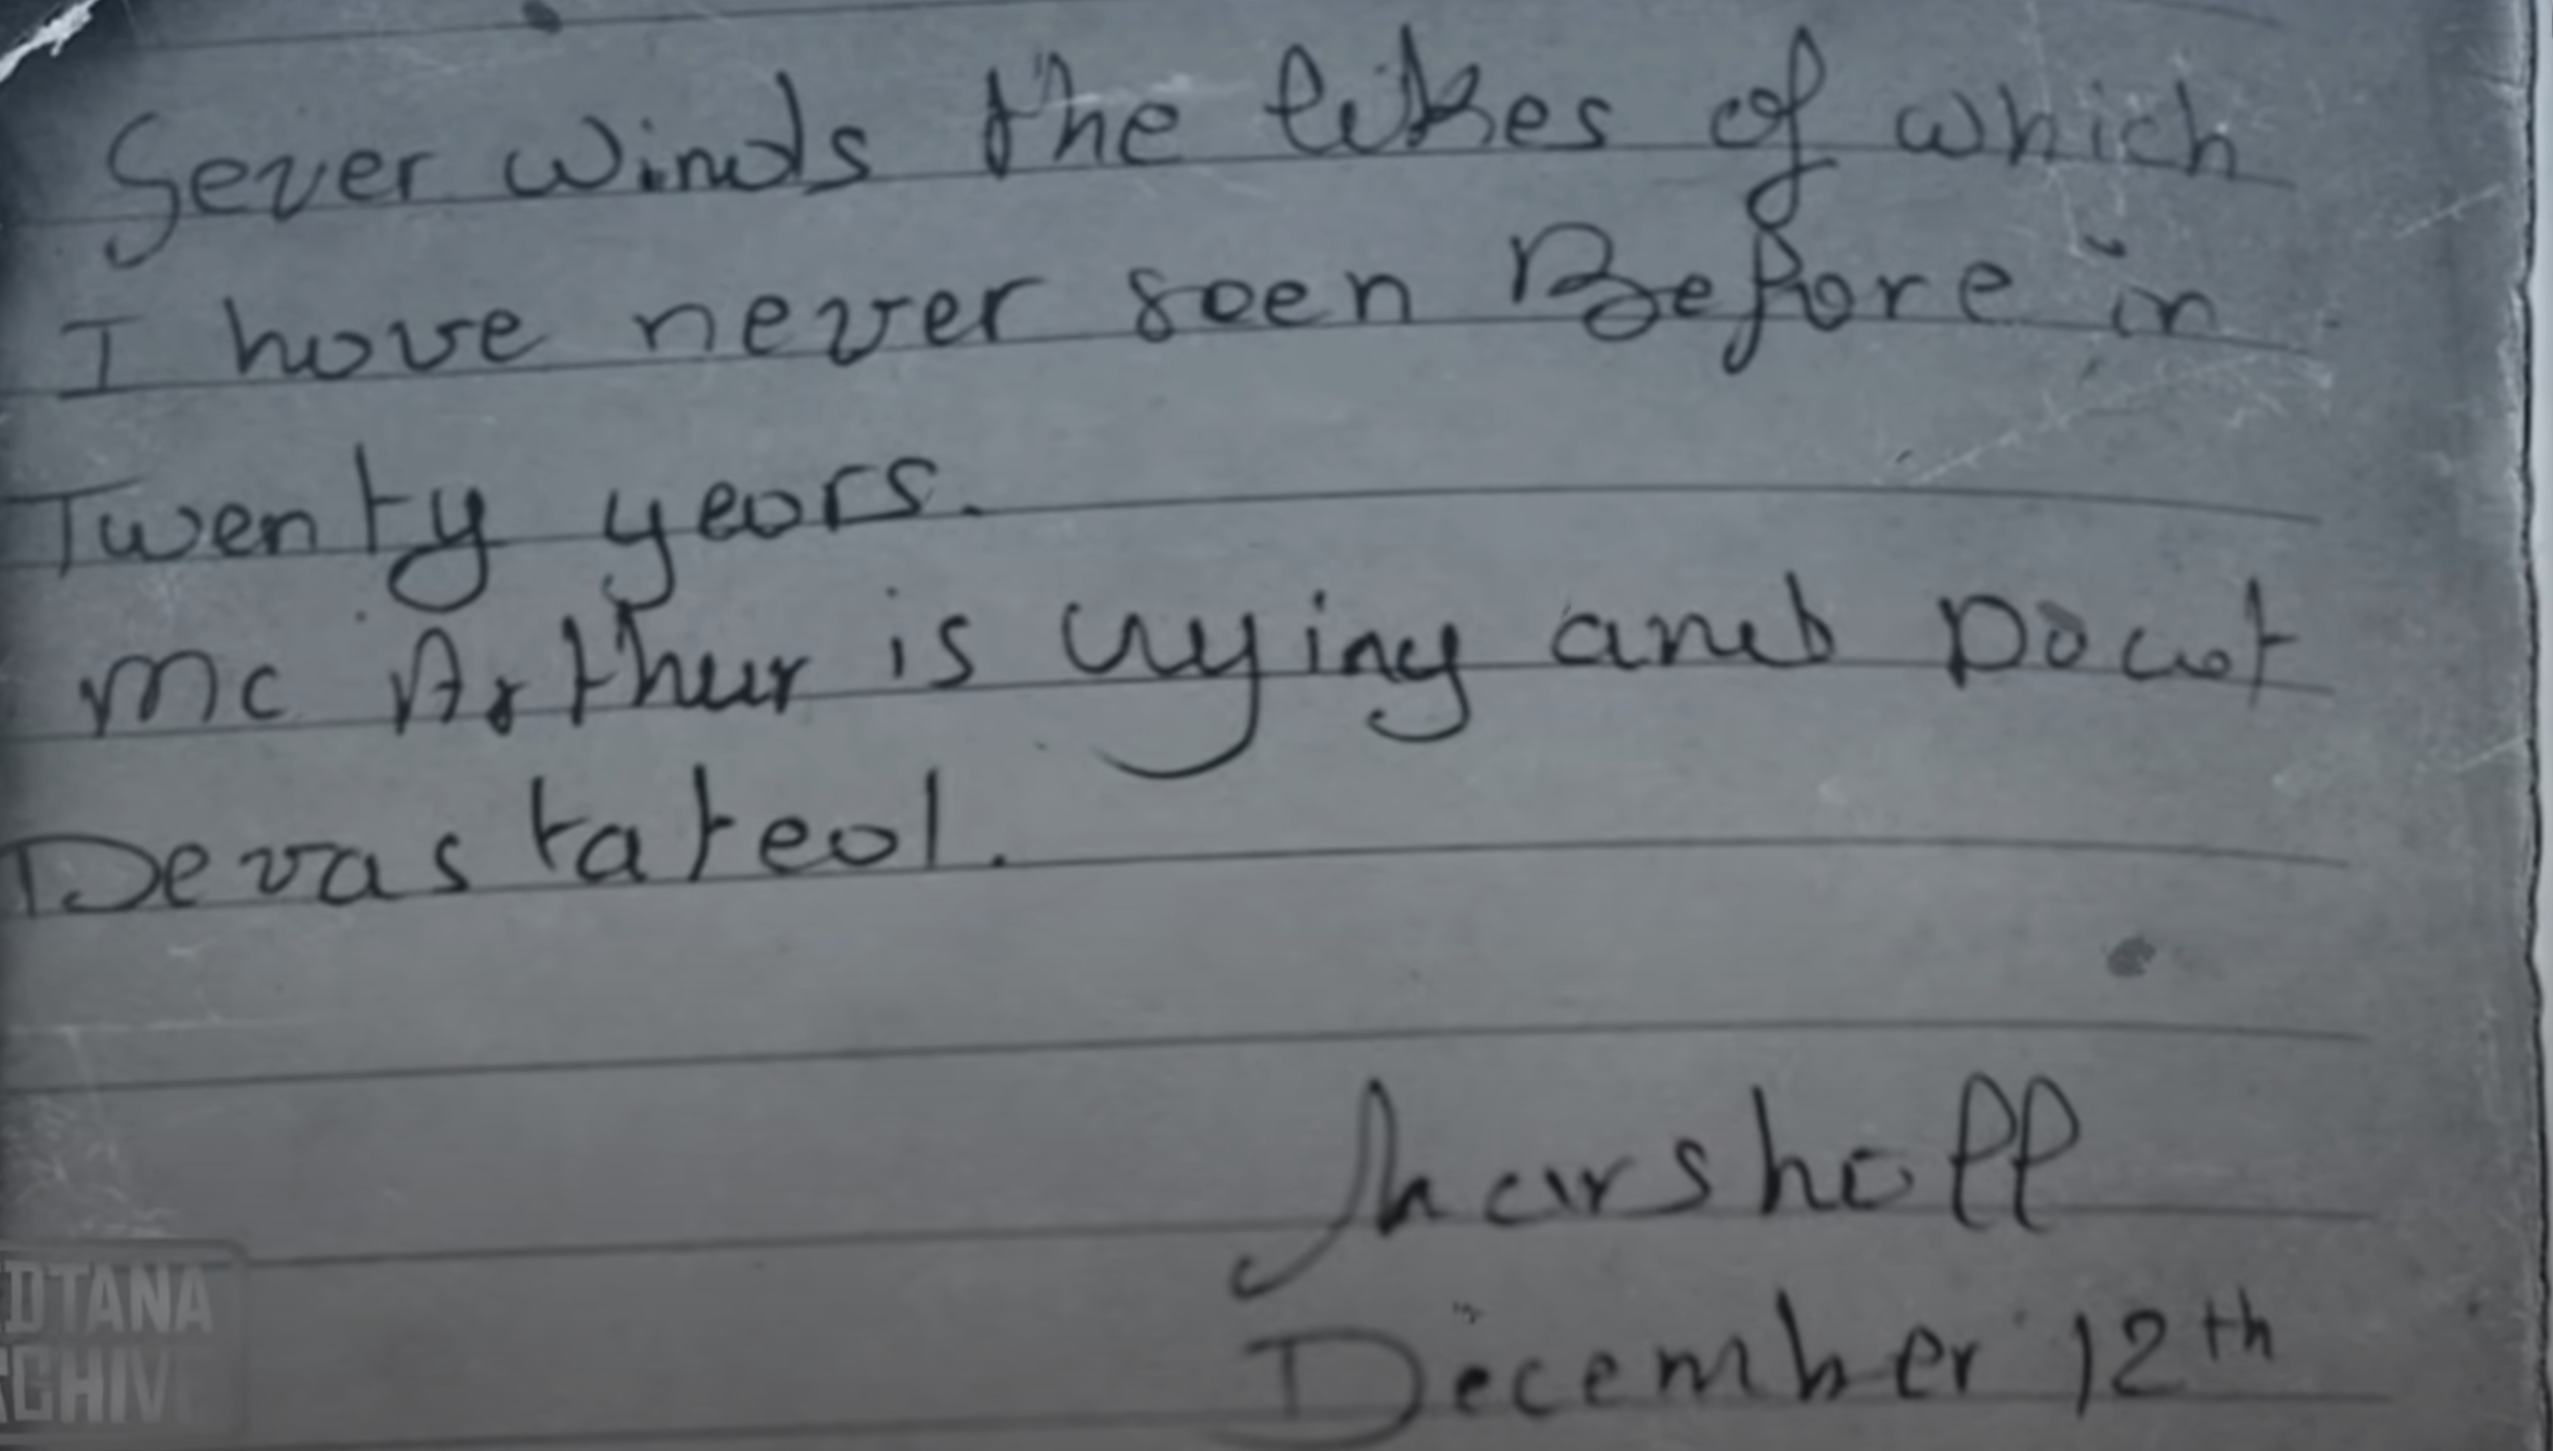 Sever winds the likes of which
I have never seen Before in
Twenty years.
Mc Arthur is crying and
Devastated.
Marshall
December 12th